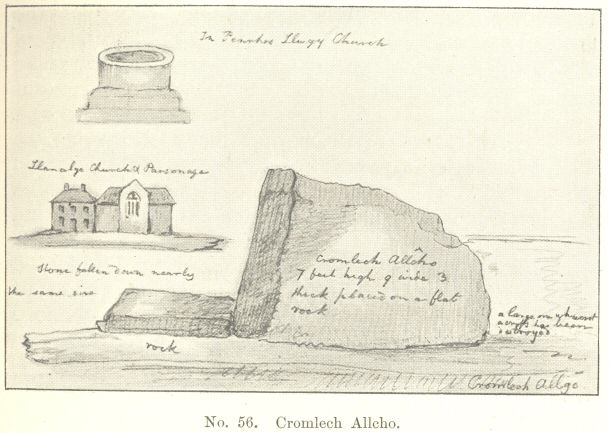 In Penrhos Llugy Church
Llanalgo Church & Parsonage
Stone fallen down nearly
the same size
Cromlech Allcho
7 feet high 9 wide 3
thick placed on a flat
rock
rock
a large one
across has been
destroyed
Cromlech Allgo
No. 56. Cromlech Allcho.